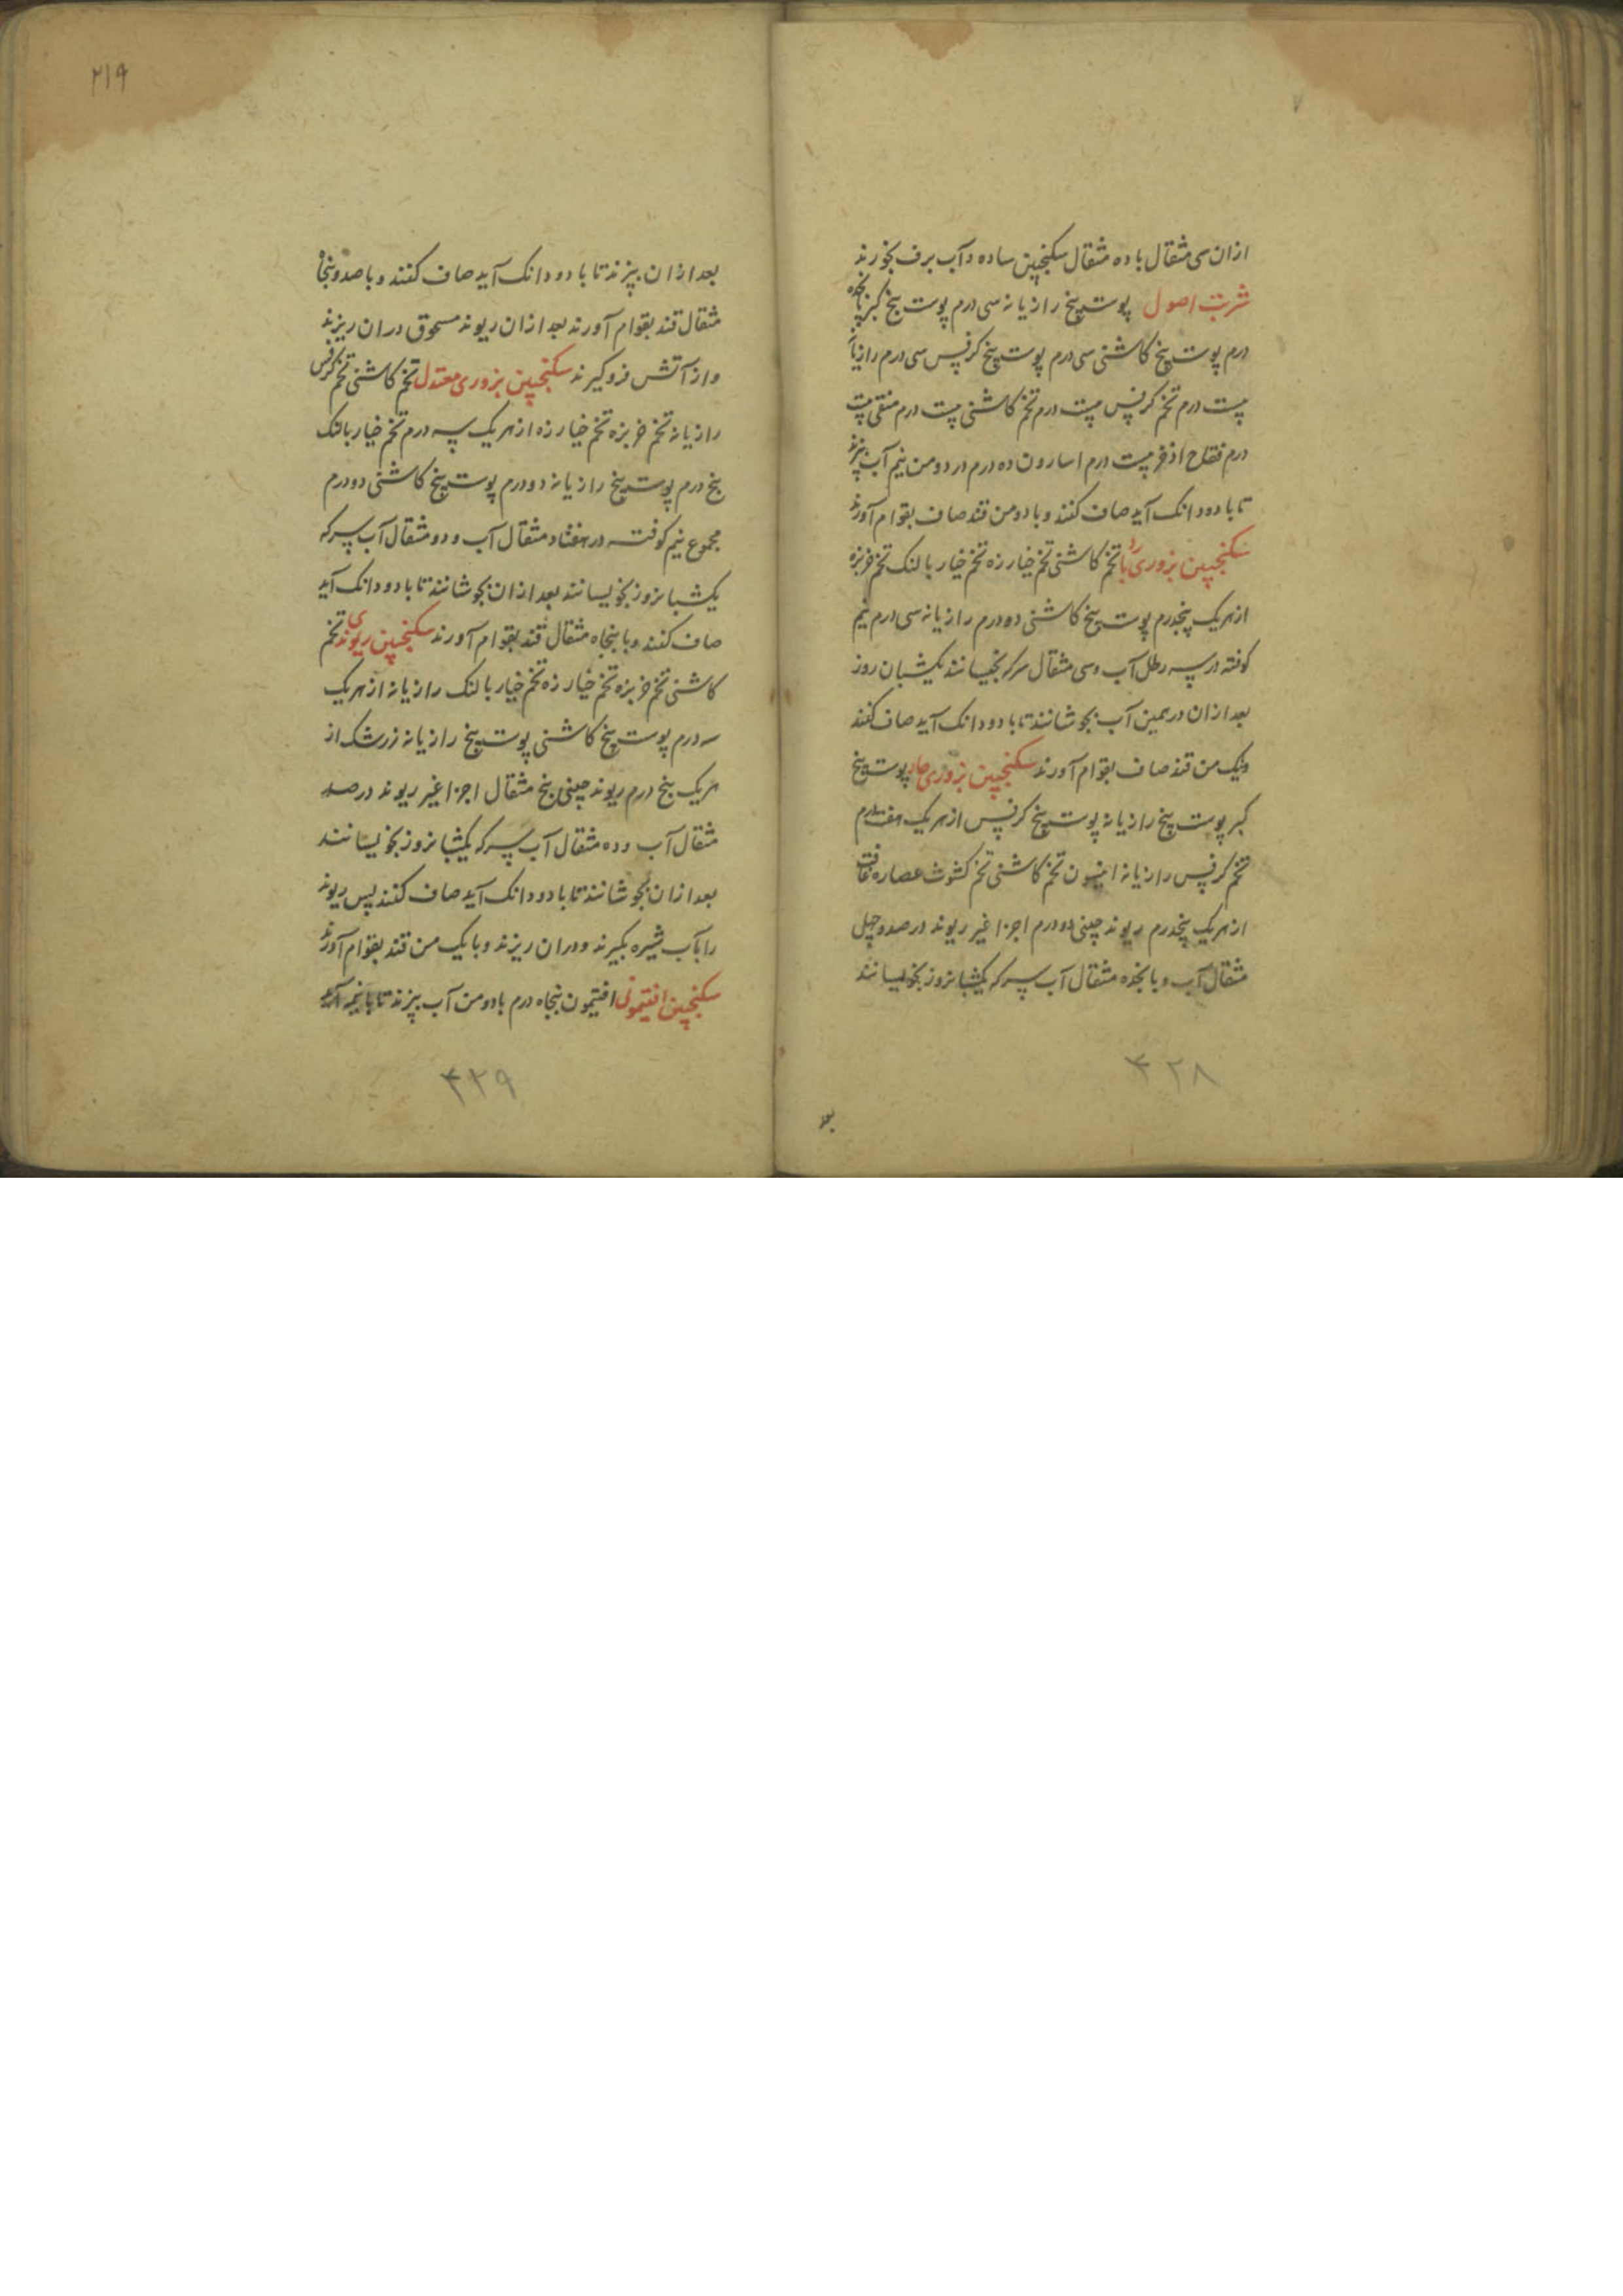 ازان سی مثقال با ده مثقال سکنجبین ساده و آب برف بخورند
شربت اصول پوست بیخ رازیانه سی درم پوست بیخ کبر پانجده
درم پوست بیخ کاشنی سی درم پوست بیخ کرفس سی درم رازیانه
بیست درم تخم کرفس بیست درم تخم کاشنی بیست درم منقی بیست
درم فقاح اذخر بیست درم اسارون ده درم در دو من نیم آب بپزند
تا با دو دانک آید صاف کنند و با دو من قند صاف بقوام آورند
سکنجبین بزوری بارد تخم کاشنی تخم خیارزه تخم خیار بالنک تخم خربزه
از هریک پنجدرم پوست بیخ کاشنی ده درم رازیانه سی درم نیم
کوفته در سه رطل آب و سی مثقال سرکه بخیسانند یکشبان روز
بعد ازان در همین آب بجوشانند تا با دو دانک آید صاف کنند
ویک من قند صاف بقوام آورند سکنجبین بزوری حار پوست بیخ
کبر پوست بیخ رازیانه پوست بیخ کرفس از هریک هفتدرم
تخم کرفس رازیانه انیسون تخم کاشنی تخم کشوث عصاره غافت
از هریک پنجدرم ریوند چینی دودرم اجزا غیر ریوند در صد و چهل
مثقال آب و پانجده مثقال آب سرکه یکشبانروز بخویسانند
۳۲۸
بعد
۲۱۹
بعد ازان بپزند تا با دو دانک آید صاف کنند و با صد و پنجاه
مثقال قند بقوام آورند بعد ازان ریوند مسحوق دران ریزند
و از آتش فرو کیرند سکنجبین بزوری معتدل تخم کاشنی تخم کرفس
رازیانه تخم خربزه تخم خیارزه از هریک سه درم تخم خیار بالنک
پنج درم پوست بیخ رازیانه دو درم پوست بیخ کاشنی دو درم
مجموع نیم کوفته در هفتاد مثقال آب و دو مثقال آب سرکه
یکشبانروز بخویسانند بعد ازان بجوشانند تا با دو دانک آید
صاف کنند و با پنجاه مثقال قند بقوام آورند سکنجبین ریوندی تخم
کاشنی تخم خربزه تخم خیارزه تخم خیار بالنک رازیانه از هریک
سه درم پوست بیخ کاشنی پوست بیخ رازیانه زرشک از
هریک پنج درم ریوند چینی پنج مثقال اجزا غیر ریوند در صد
مثقال آب و ده مثقال آب سرکه یکشبانروز بخویسانند
بعد ازان بجوشانند تا با دو دانک آید صاف کنند پس ریوند
را بآب شیره بکیرند و دران ریزند و با یک من قند بقوام آورند
سکنجبین افتیمونی افتیمون پنجاه درم با دو من آب بپزند تا با نیمه آید
۳۲۹